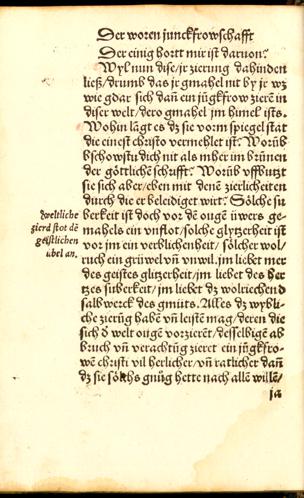 Der woren junckfrowschafft
Der einig hortt mir ist daruon?
Wyl nun dise/jr zierung dahinden
ließ/drumb das jr gmahel nit by jr wz
wie gdar sich dañ ein jũgkfrow zierē in
diser welt/dero gmahel jm himel ists.
Wohin lãgt es dz sie vorm spiegel stat
die einest christo vermehlet ist? Worũb
bschowstu dich nit als mher im brũnen
der göttlichē schrifft? Worũb vffbutzt
sie sich aber/eben mit denē zierlicheiten
durch die er beleidiget wirt? Sölche su
berkeit ist doch vor dē ougē üwers ge-
mahels ein vnflot/solche glytzerheit ist
vor jm ein verblichenheit/ sölcher wol/
ruch ein grüwel vñ vnwil. jm liebet mer
des geistes glitzerheit/ jm liebet des her
tzes suberkeit/ jm liebet dz wolriechend
salbwerck des gmüts. Alles dz wybli-
che zierũg habē vñ leistē mag/ deren die
sich d̄ welt ougē vorzierēt/ desselbigē ab
bruch vñ verachtũg zieret ein jũgkfro-
wē christi vil herlicher/ vñ ratlicher dañ
dz sie sölchs gnũg hette nach allē willē/
ja
Zweltliche
zierd stot dē
geistlichen
übel an.